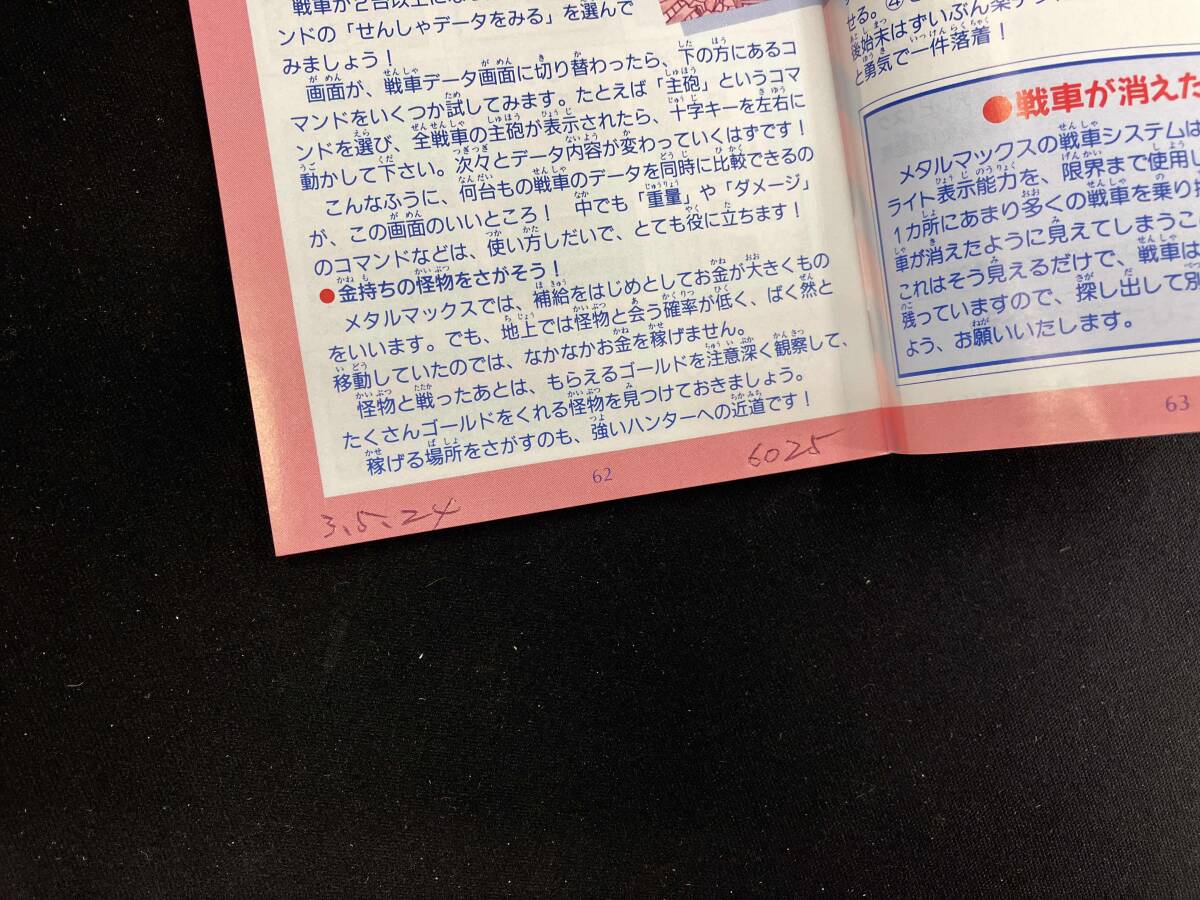 戦車が2台以上になっ
ンドの「せんしゃデータをみる」を選んで
みましょう！
画面が、戦車データ画面に切り替わったら、下の方にあるコ
マンドをいくつか試してみます。たとえば「主砲」というコマ
ンドを選び、全戦車の主砲が表示されたら、十字キーを左右に
動かして下さい。次々とデータ内容が変わっていくはずです！
こんなふうに、何台もの戦車のデータを同時に比較できるの
が、この画面のいいところ！　中でも「重量」や「ダメージ」
のコマンドなどは、使い方しだいで、とても役に立ちます！
●金持ちの怪物をさがそう！
メタルマックスでは、補給をはじめとしてお金が大きくもの
をいいます。でも、地上では怪物と会う確率が低く、ばく然と
移動していたのでは、なかなかお金を稼げません。
怪物と戦ったあとは、もらえるゴールドを注意深く観察して、
たくさんゴールドをくれる怪物を見つけておきましょう。
稼げる場所をさがすのも、強いハンターへの近道です！
62
3、5、24
6025
せる。④
後始末はずいぶん楽
と勇気で一件落着！
●戦車が消えた
メタルマックスの戦車システムは
ライト表示能力を、限界まで使用し
1カ所にあまり多くの戦車を乗り
車が消えたように見えてしまうこ
これはそう見えるだけで、戦車は
残っていますので、探し出して別
よう、お願いいたします。
63